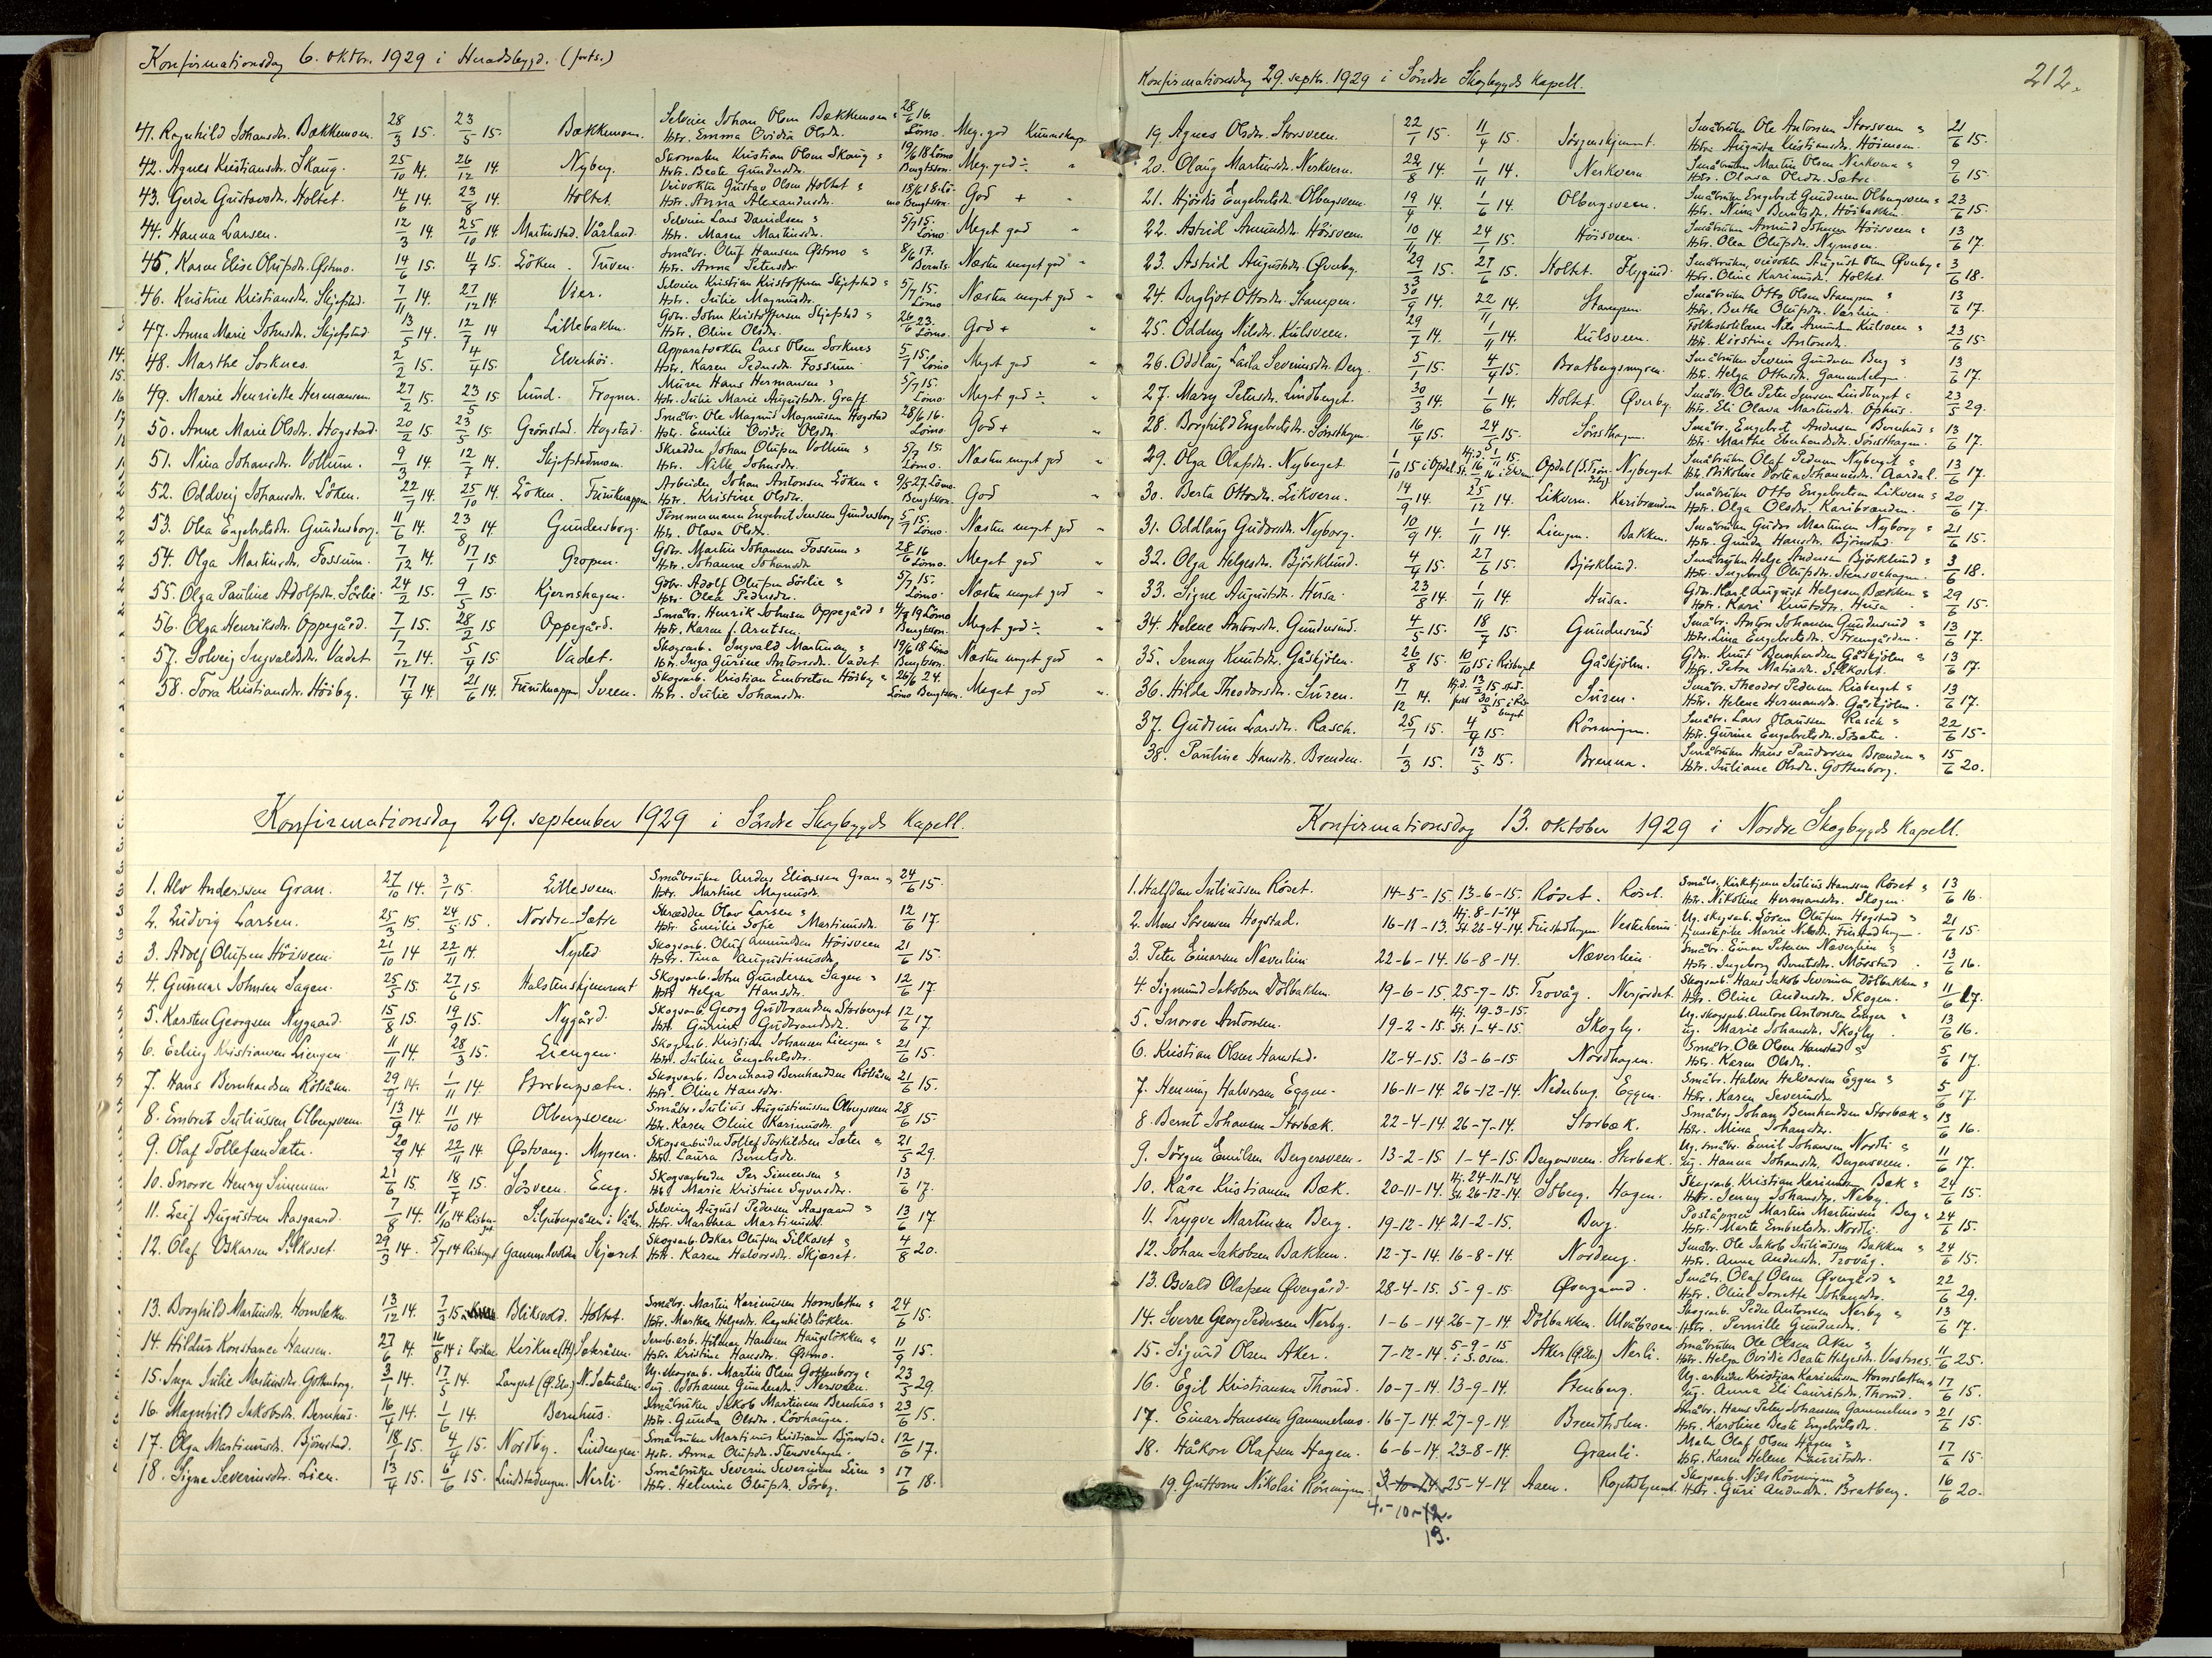 Konfirmationsdag 6. oktbr. 1929 i Heradsbygd. (forts.)
41. Ragnhild Johansdtr. Bækkemoen. 28/3 15. 23/5 15. Bækkemoen. Selveier Johan Olsen Bækkemoen " Hstr. Emma Ovidia Olsdtr. 28/6 16. Lömo. Meg. god Kunnskap
42. Agnes Kristiansdtr. Skaug. 25/10 14. 26/12 14. Nyberg. Skomaker Kristian Olsen Skaug " Hstr. Beate Gundersdtr. 19/6 18 Lömo Bengtsson. Meg. god ÷ "
43. Gerda Gustavsdtr. Holtet. 14/6 14. 23/8 14. Holtet. Veivokter Gustav Olsen Holtet " Hstr. Anna Alexandersdtr. 18/6 18. Lömo Bengtsson. God + "
44. Hanna Larsen. 12/3 14. 25/10 14. Martinstad. Vårland. Selveier Lars Danielsen " Hstr. Maren Martinsdtr. 5/7 15. Lömo. Meget god "
45. Karen Elise Olufsdtr. Østmo. 14/6 15. 11/7 15. Löken. Tuven. Småbr. Oluf Hansen Østmo " Hstr. Anna Petersdtr. 8/6 17. Bernts. Næsten meget god "
46. Kristine Kristiansdtr. Skjefstad. 7/11 14. 27/12 14. Vier. Selveier Kristian Kristoffersen Skjefstad " Hstr. Julie Magnusdtr. 5/7 15. Lömo Næsten meget god "
47. Anna Marie Johnsdtr. Skjefstad 13/5 14. 12/7 14 Lillebakken. Gbr. John Kristoffersen Skjefstad " Hstr. Oline Olsdtr. 26/6 23. Lömo. God + "
48. Marthe Sorknes. 2/2 15. 4/4 15. Elverhöi. Apparatvokter Lars Olsen Sorknes Hstr. Karen Pedersdtr. Fossum. 5/7 15. Lömo Meget god "
49. Marie Henriette Hermansen 27/2 15. 23/5 15 Lund. Frogner. Murer Hans Hermansen " Hstr. Julie Marie Augustsdtr. Graff 5/7 15. Lömo. Meget god ÷ "
50. Anne Marie Olsdtr. Hogstad. 20/2 15. 23/5 15. Grönstad. Hogstad. Småbr. Ole Magnus Magnusen Hogstad Hstr. Emilie Ovidie Olsdtr. 28/6 16. Lömo God + "
51. Nina Johansdtr. Vollum. 9/3 14. 12/7 14. Skjefstadmoen. Skredder Johan Olufsen Vollum " Hstr. Nille Johnsdtr. 5/7 15. Lömo. Næsten meget god "
52. Oddveig Johansdtr. Löken. 22/7 14. 25/10 14. Löken. Furuknappen. Arbeider Johan Antonsen Löken " Hstr. Kristine Olsdtr. 9/5 27. Lömo. Bengtsson. God "
53. Olea Engebretsdtr. Gundersborg. 11/6 14. 23/8 14. Gundersborg. Tömmermann Engebret Jensen Gundersborg Hstr. Olava Olsdtr. 5/7 15. Lömo. Næsten meget god "
54. Olga Martinsdtr. Fossum. 7/12 14. 17/1 15. Gropen. Gbr. Martin Johansen Fossum " Hstr. Johanne Johansdtr. 28/6 16 Lömo. Meget god "
55. Olga Pauline Adolfsdtr. Sörlie. 24/2 15. 9/5 15. Kjernshagen. Gbr. Adolf Olufsen Sörlie " Hstr. Olea Pedersdtr. 5/7 15. Lömo. Næsten meget god "
56. Olga Henriksdtr. Oppegård. 7/1 15. 28/2 15 Oppegård. Småbr. Henrik Johnsen Oppegård " Hstr. Karen f. Arntsen. 4/7 19 Lömo Bengtsson. Meget god ÷ "
57. Solveig Ingvaldsdtr. Vadet 7/12 14. 5/4 15. Vadet. Skogsarb. Ingvald Martinsen " Hstr. Inga Gurine Antonsdtr. Vadet 19/6 18 Lömo Bengtsson. Næsten meget god "
58. Tora Kristiansdtr. Höiby. 17/4 14. 21/6 14. Furuknappen Sveen. Skogsarb. Kristian Embretsen Höiby " Hstr. Julie Johansdtr. 26/6 24. Lömo Bengtsson. Meget god "
Konfirmationsdag 29. september 1929 i Söndre Skogbygds Kapell.
1. Alv Anderssen Gran. 27/10 14. 3/1 15. Lillesveen. Småbruker Anders Eliassen Gran " Hstr. Martine Magnusdtr. 24/6 15.
2. Ludvig Larsen. 25/3 15. 24/5 15. Nordre-Sætre Skredder Olav Larsen " Hstr. Emilie Sofie Martinusdtr. 12/6 17
3. Adolf Olufsen Höisveen. 21/10 14 22/11 14. Nysted Skogsarb. Oluf Amundsen Höisveen Hstr. Tina Augustinusdtr. 21/6 15.
4. Gunnar Johnsen Sagen. 25/5 15. 27/6 15. Halstenskjennet Skogsarb. John Gundersen Sagen " Hstr. Helga Hansdtr. 12/6 17
5. Karsten Georgsen Nygaard. 15/8 15. 19/9 15. Nygård. Skogsarb. Georg Gudbrandsen Storberget Hstr. Gurine Gudbrandsdtr. 12/6 17
6. Erling Kristiansen Liengen. 11/11 14. 28/3 15. Liengen. Skogsarb. Kristian Johansen Liengen " Hstr. Juline Engebretsdtr. 21/6 15.
7. Hans Bernhardsen Kölåsen. 29/9 14. 1/11 14. Storbergsæter. Skogsarb. Bernhard Bernhardsen Kölåsen Hstr. Oline Hansdtr. 21/6 15.
8. Embret Juliussen Olbergsveen. 13/9 14 11/10 14 Olbergsveen Småbr. Julius Augustinussen Olbergsveen Hstr. Karen Oline Karinusdtr. 28/6 15.
9. Olaf Tollefsen Sæter. 20/9 14 22/11 14. Østvang. Myren. Skogsarbeider Tollef Torkildsen Sæter " Hstr. Laura Berntsdtr. 21/5 29.
10. Snorre Henry Simensen 21/6 15. 18/7 15. Sösveen. Eng. Skogsarbeider Per Simensen " Hstr. Marie Kristine Syversdtr. 13/6 17.
11. Leif Augustsen Aasgaard. 7/8 14. 11/10 14 Risberget. Siljubergsåsen i Våler. Selveier August Pedersen Aasgaard " Hstr. Marthea Martinusdtr. 13/6 17.
12. Olaf Oskarsen Silkoset. 29/3 14. 5/7 14 Risberget Gammelsætra Skjæret Skogsarb. Oskar Olufsen Silkoset " Hstr. Karen Halvorsdtr. Skjæret. 4/8 20.
13. Borghild Martinsdtr. Hornsletten. 13/12 14. 7/3 15 Bliksvold. Holtet. Småbr. Martin Karinusen Hornsletten " Hstr. Marthea Helgesdtr. Ragnhildslökken. 24/6 15.
14. Hildur Konstanse Hansen. 27/6 14. 16/8 14 i Koirkne Keirkne (St) Sæteråsen. Jernb.arb. Hilmar Hansen Haugslökken " Hstr. Kristine Hansdtr. Østmo. 11/9 15.
15. Inga Julie Martinsdtr. Gottenborg. 3/1 14. 17/5 14. Langset (Ø.Elv.) N. Sæteråsen. Ug. skogsarb. Martin Olsen Gottenborg " ug. Johanne Gundersdtr. Nersveen. 23/5 29.
16. Magnhild Jakobsdtr. Bernhus. 16/4 14. 1/6 14. Bernhus. Småbruker Jakob Martinsen Bernhus " Hstr. Gunda Olsdtr. Lövhaugen. 23/6 15.
17. Olga Martinusdtr. Björnstad. 18/1 15. 4/4 15. Nordby. Lindengen. Småbruker Martinus Kristiansen Björnstad " Hstr. Anna Olufsdtr. Stensvehagen. 12/6 17.
18. Signe Severinsdtr. Lien. 13/4 15. 6/6 15. Lindstadengen. Nerli. Småbruker Severin Severinsen Lien " Hstr. Helmine Olufsdtr. Sörby. 17/6 18.
212.
Konfirmationsdag 29. septbr. 1929 i Söndre Skogbygds Kapell.
19. Agnes Olsdtr. Storsveen. 22/1 15. 11/4 15. Sörgenskjennet. Småbruker Ole Antonsen Storsveen " Hstr. Augusta Kristiansdtr. Höimoen. 21/6 15.
20. Olaug Martinsdtr. Nerkvern. 22/8 14. 1/11 14. Nerkvern Småbruker Martin Olsen Nerkvern " Hstr. Olava Olsdtr. Sætre. 9/6 15.
21. Hjördis Engebretsdtr. Olbergsveen. 19/4 14. 1/6 14. Olbergsveen. Småbruker Engebret Gundersen Olbergsveen " Hstr. Nina Berntsdtr. Höibakken. 23/6 15.
22. Astrid Amundsdtr. Höisveen. 10/11 14. 24/1 15. Höisveen. Småbruker Amund Johnsen Höisveen " Hstr. Olea Olufsdtr. Nymoen. 13/6 17.
23. Astrid Augustsdtr. Øverby. 29/3 15. 27/6 15. Holtet. Flygind. Småbruker, veivokter August Olsen Øverby " Hstr. Oline Karinusdtr. Holtet. 3/6 18.
24. Bergljot Ottosdtr. Stampen. 30/9 14. 22/11 14. Stampen. Småbruker Otto Olsen Stampen " Hstr. Berthe Olufsdtr. Vårlien. 13/6 17.
25. Oddny Nilsdtr. Kulsveen. 29/7 14. 1/11 14. Kulsveen. Folkeskolelærer Nils Amundsen Kulsveen " Hstr. Kirstine Antonsdtr. 23/6 15.
26. Oddlaug Laila Severinsdtr. Berg. 5/1 15. 4/4 15. Bratbergsmyren. Småbruker Severin Gundersen Berg " Hstr. Helga Ottersdtr. Gammelengen. 13/6 17.
27. Mary Petersdtr. Lindberget. 30/3 14. 1/6 14. Holtet. Øverby. Småbr. Ole Peter Jensen Lindberget " Hstr. Eli Olava Martinsdtr. Ophus. 23/5 29.
28. Borghild Engebretsdtr. Sörsthagen. 16/4 15. 24/5 15. Sörsthagen. Småbr. Engebret Andersen Bernhus " Hstr. Marthe Eberhardsdtr. Sörsthagen. 13/6 17.
29. Olga Olafsdtr. Nyberget. 1/10 15 i Opdal Opdal (S.Trön-delag) Nyberget. Småbruker Olaf Pedersen Nyberget " Hstr. Nikoline Dortea Johannesdtr. Aardal. 13/6 17.
30. Berta Ottosdtr. Likvern. 14/9 14. 25/12 14. Likvern. Karibranden Småbruker Otto Engebretsen Likvern " Hstr. Olga Olsdtr. Karibranden. 20/6 17.
31. Oddlaug Gudorsdtr. Nyborg. 10/9 14. 1/11 14. Liengen. Bakken. Småbruker Gudor Martinsen Nyborg " Hstr. Gunda Hansdtr. Björnstad. 21/6 15.
32. Olga Helgesdtr. Björklund. 4/4 15. 27/6 15. Björklund. Småbruker Helge Andersen Björklund " Hstr. Ingeborg Olufsdtr. Stensvehagen. 3/6 18.
33. Signe Augustsdtr. Husa. 23/8 14. 1/11 14. Husa. Gbr. Karl August Helgesen Bækken " Hstr. Kari Knutsdtr. Husa. 29/6 15.
34. Helene Antonsdtr. Gundersrud. 4/5 15. 18/7 15. Gundersrud Småbr. Anton Johansen Gundersrud " Hstr. Lina Engebretsdtr. Fremgården. 13/6 17.
35. Jenny Knutsdtr. Gåskjölen. 26/8 15. 10/10 15 i Risberget Gåskjölen. Gbr. Knut Bernhardsen Gåskjölen " Hstr. Petra Matiasdtr. Silkoset. 13/6 17.
36. Hilda Theodorsdtr. Suren. 17/12 14. Hj.d. 13/2 15, stad-fest 30/5 15 i Ris-berget Suren. Småbr. Theodor Pedersen Risberget " Hstr. Helene Hermansdtr. Gåskjölen. 13/6 17.
37. Gudrun Larsdtr. Rasch. 25/1 15. 4/4 15. Rönningen. Småbr. Lars Hanssen Rasch " Hstr. Gurine Engebretsdtr. Sörsæter. 22/6 15.
38. Pauline Hansdtr. Brenden. 1/3 15. 13/5 15. Brenna. Småbruker Hans Paudersen Brænden " Hstr. Juliane Olsdtr. Gottenborg. 15/6 20.
Konfirmationsdag 13. oktober 1929 i Nordre Skogbygds Kapell.
1. Halfdan Juliussen Röset. 14-5-15. 13-6-15. Röset. Röset. Småbr., Kirketjener Julius Hanssen Röset " Hstr. Nikoline Hermansdtr. Skogen. 13/6 16.
2. Mons Sörensen Hogstad. 16-11-13. Hj. 8-1-14 St. 26-4-14. Furustadhagen. Vesterheim Ug. skogsarb. Sören Olufsen Hogstad " tjenestepike Marie Nilsdtr. Furustadhagen. 21/6 15.
3. Peter Einarsen Næverlien 22-6-14. 16-8-14. Næverlien. Småbr. Einar Petersen Næverlien " Hstr. Ingeborg Berntsdtr. Mörstad. 13/6 16.
4. Sigmund Jakobsen Dölbakken. 19-6-15. 25-7-15. Trovåg. Nerjordet. Skogsarb. Hans Jakob Severinsen Dölbakken " Hstr. Oline Andersdtr. Skogen. 11/6 17.
5. Snorre Antonsen. 19-2-15. Hj. 19-3-15. St. 1-4-15. Skogly. Ug. skogsarb. Anton Antonsen Enger " ug. Marie Johansdtr. Skogly. 13/6 16.
6. Kristian Olsen Hanstad. 12-4-15. 13-6-15 Nordhagen. Småbr. Ole Olsen Hanstad " Hstr. Karen Olsdtr. 5/6 17.
7. Henning Halvorsen Eggen. 16-11-14. 26-12-14. Nederberg. Eggen. Småbr. Halvor Halvorsen Eggen " Hstr. Karen Severinsdtr. 5/6 17.
8. Bernt Johansen Storbæk. 22-4-14. 26-7-14. Storbæk. Småbr. Johan Bernhardsen Storbæk " Hstr. Mina Johansdtr. 13/6 16.
9. Jörgen Emilsen Bergersveen. 13-2-15. 1-4-15. Bergersveen. Storbæk. Ug. småbr. Emil Johansen Nordli " ug. Hanna Johansdtr. Bergersveen. 11/6 17.
10. Kåre Kristiansen Bæk. 20-11-14. Hj. 24-11-14. St. 26-12-14. Sköberg. Hagen. Skogsarb. Kristian Karinusen Bæk " Hstr. Jenny Johansdtr. Neby. 24/6 15.
11. Trygve Martinsen Berg. 19-12-14 21-2-15. Berg. Poståpner Martin Martinsen Berg " Hstr. Marte Embretsdtr. Nordli. 24/6 15.
12. Johan Jakobsen Bakken. 12-7-14. 16-8-14. Nordeng. Småbr. Ole Jakob Juliussen Bakken " Hstr. Anna Andersdtr. Trovåg. 24/6 15.
13. Osvald Olafsen Øvergård. 28-4-15. 5-9-15. Øvergaard. Småbr. Olaf Olsen Øvergård " Hstr. Oline Jonette Johansdtr. 22/6 29.
14. Sverre Georg Pedersen Nerby. 1-6-14 26-7-14 Dölbakken. Ulvåbroen. Skogsarb. Peder Antonsen Nerby " Hstr. Pernille Gundersdtr. 13/6 17.
15. Sigurd Olsen Aker. 7-12-14. 5-9-15 i S. Osen. Aker (Ø.Elv.) Nerli. Småbruker Ole Olsen Aker " Hstr. Helga Ovidie Beate Helgesdtr. Vastnes. 11/6 25.
16. Egil Kristiansen Thorud. 10-7-14. 13-9-14. Stenberg. Ug. arbeider Kristian Karinusen Hornsletten " ug. Anna Eli Lauritsdtr. Thorud. 17/6 15.
17. Einar Hanssen Gammelmo. 16-7-14. 27-9-14. Brendholen. Småbr. Hans Peter Johansen Gammelmo " Hstr. Karoline Beate Engebretsdtr. 21/6 15.
18. Håkon Olafsen Hagen. 6-6-14. 23-8-14. Granli. Maler Olaf Olsen Hagen " Hstr. Karen Helene Lauritsdtr. 17/6 15.
19. Guttorm Nikolai Rönningen. 3-10-14. 25-4-14. Aaen. Skogsarb. Nils Rönningen " Hstr. Guri Andersdtr. Bratberg. 16/6 20.
4.-10-12.
13.